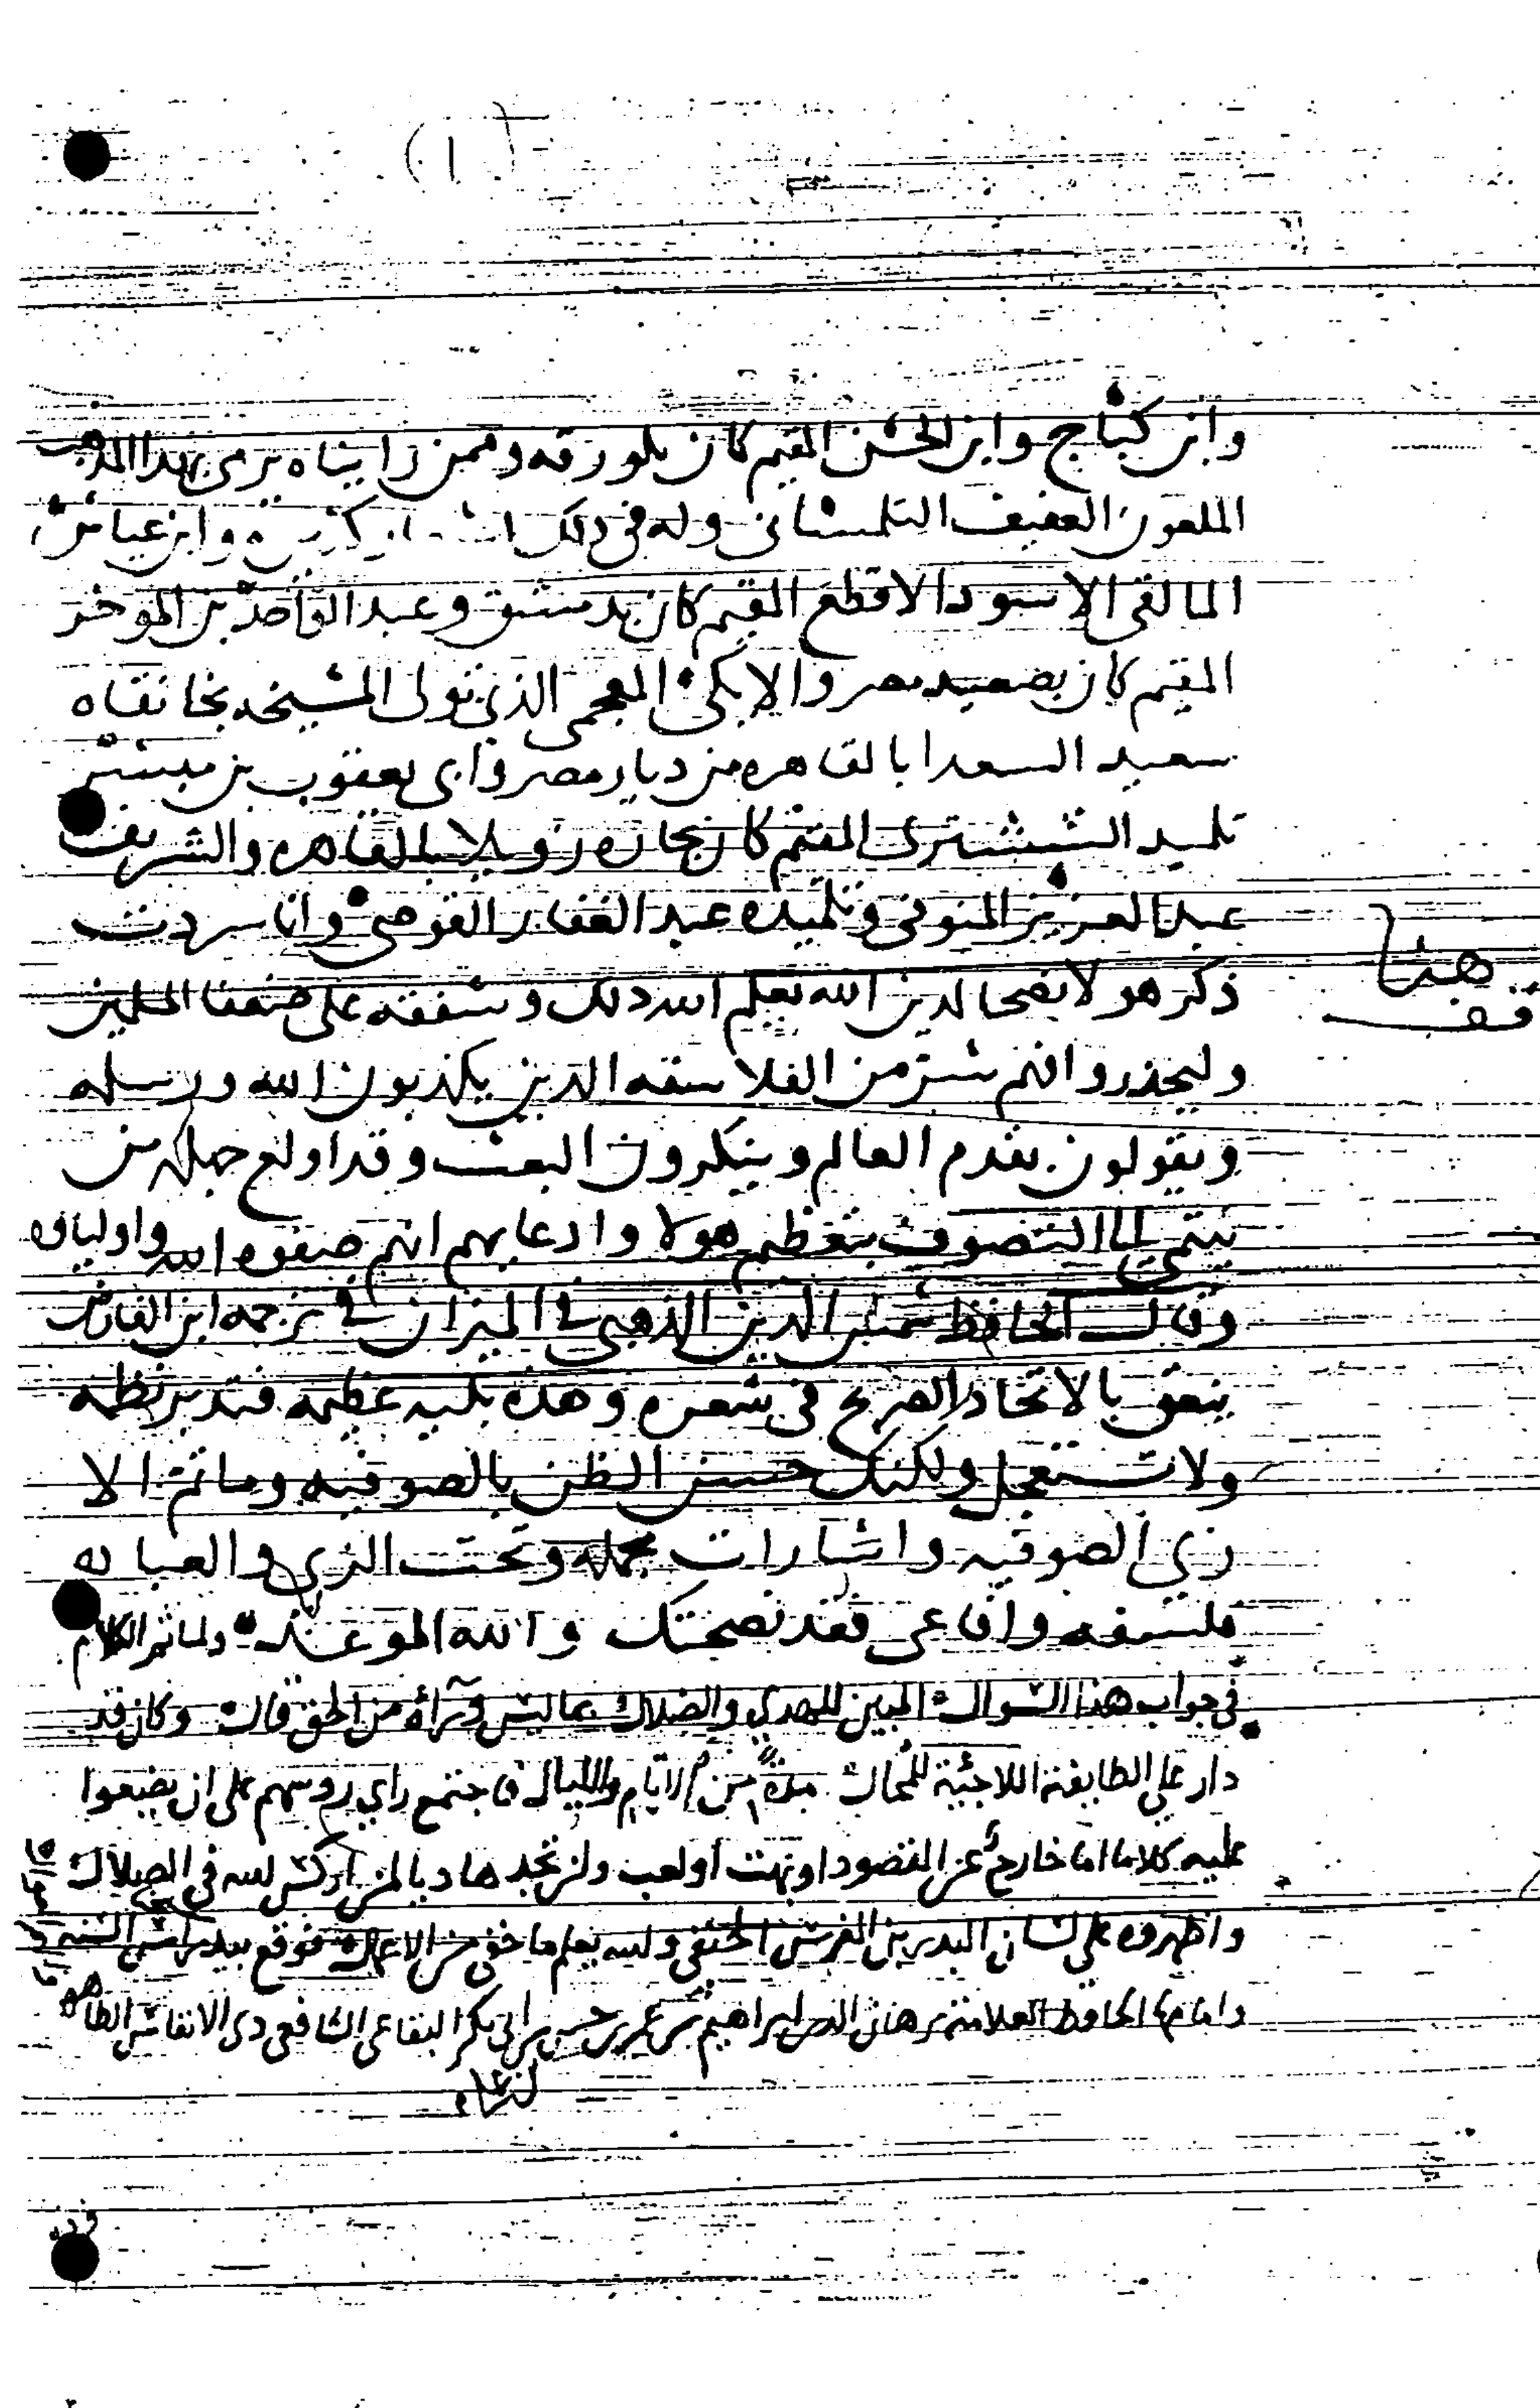 (١)
وابن كباج وابن الحسن المقيم كان بلورقه وممن رايناه يرمى بهذا المذهب
الملعون العفيف التلمسانى وله فى ذلك وابن عياش
المالقى الاسود الاقطع المقيم كان بدمشق وعبد الواحد بن الموخر
المقيم كان بصعيد مصر والايكى العجمى الذى تولى المشيخه بخانقاه
سعيد السعدا بالقاهره من ديار مصر وابى يعقوب بن مبشر
تلميد الششترى المقيم كان بحاره زويلا بالقاهره والشريف
عبد العزيز المنوفى وتلميده عبد الغفار القوصى وانا سردت
ذكر هولا نصحا لدين الله يعلم الله ذلك وشفقه على ضعفا المسلمين
وليحذروا فهم شر من الفلاسفه الذين يكذبون الله ورسله
ويقولون بقدم العالم وينكرون البعث وقد اولع جهله من
ينتمى الى التصوف بتعظيم هولا وادعايهم انهم صفوه الله واولياوه
وقال الحافظ شمس الدين الذهبى فى الميزان فى ترجمه ابن الفارض
ينعق بالاتحاد الصريح فى شعره وهذه بليه عظيمه فتدبر نظمه
ولا تستعجل ولكنك حسن الظن بالصوفيه وما ثم الا
زي الصوفيه واشارات مجمله وتحت الزي والعبايه
فلسفه وافاعى فقد نصحتك والله الموعد ولما تم الكلام
فى جواب هذا السوال المبين للهدي والضلال بما ليس ورآءه من الحق قال وكان قد
دار علي الطايفة اللاجئية للمحال مدة من الايام والليال فاجتمع راي روسهم على ان يضعوا
عليه كلاما اما خارج عن المقصود او بهت او لعب ولن تجد هاديا لمن اركس لله فى الضلال
واظهروه على لسان البدر بن الغرس الحنفى ولله يعلم ما خفى من الاعلان فوقع بيد السنه
وامامها الحافظ العلامة برهان الدين ابراهيم بن عمر بن حسن بن ابى بكر البقاعى الشافعى ذى الانفاس الطاهره
هنا
قف